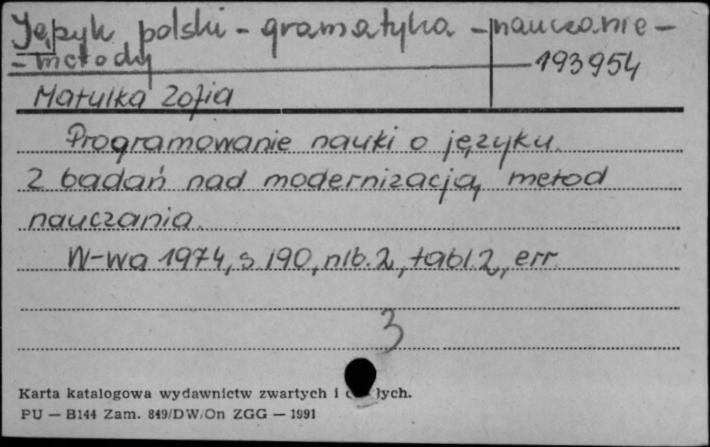 Język polski - gramatyka - nauczanie -
- metody
193954
Matulka Zofia
Programowanie nauki o języku.
Z badań nad modernizacją metod
nauczania.
W-wa 1974, s. 190, nlb. 2, tabl. 2, err.
3
Karta katalogowa wydawnictw zwartych i łych.
PU — B144 Zam. 849/DW/On ZGG — 1991